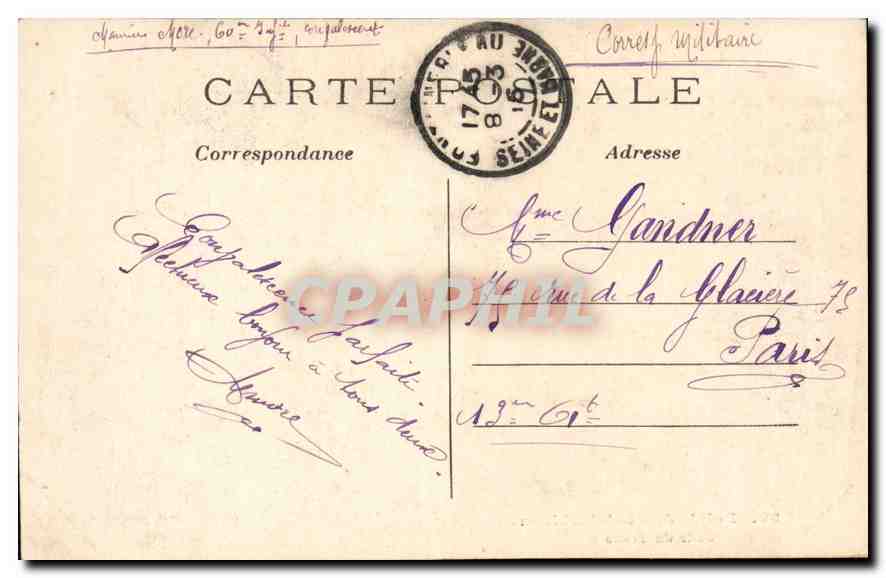 60me Infie, convalescent
Corresp Militaire
CARTE POSTALE
AU
17 45
8 -3
15
SEINE ET MARNE
Correspondance
Adresse
Convalescence parfaite.
Affectueux bonjour à tous deux.
Mme Gandner
75 rue de la Glacière 75
Paris
13me Art
CPAPHIL